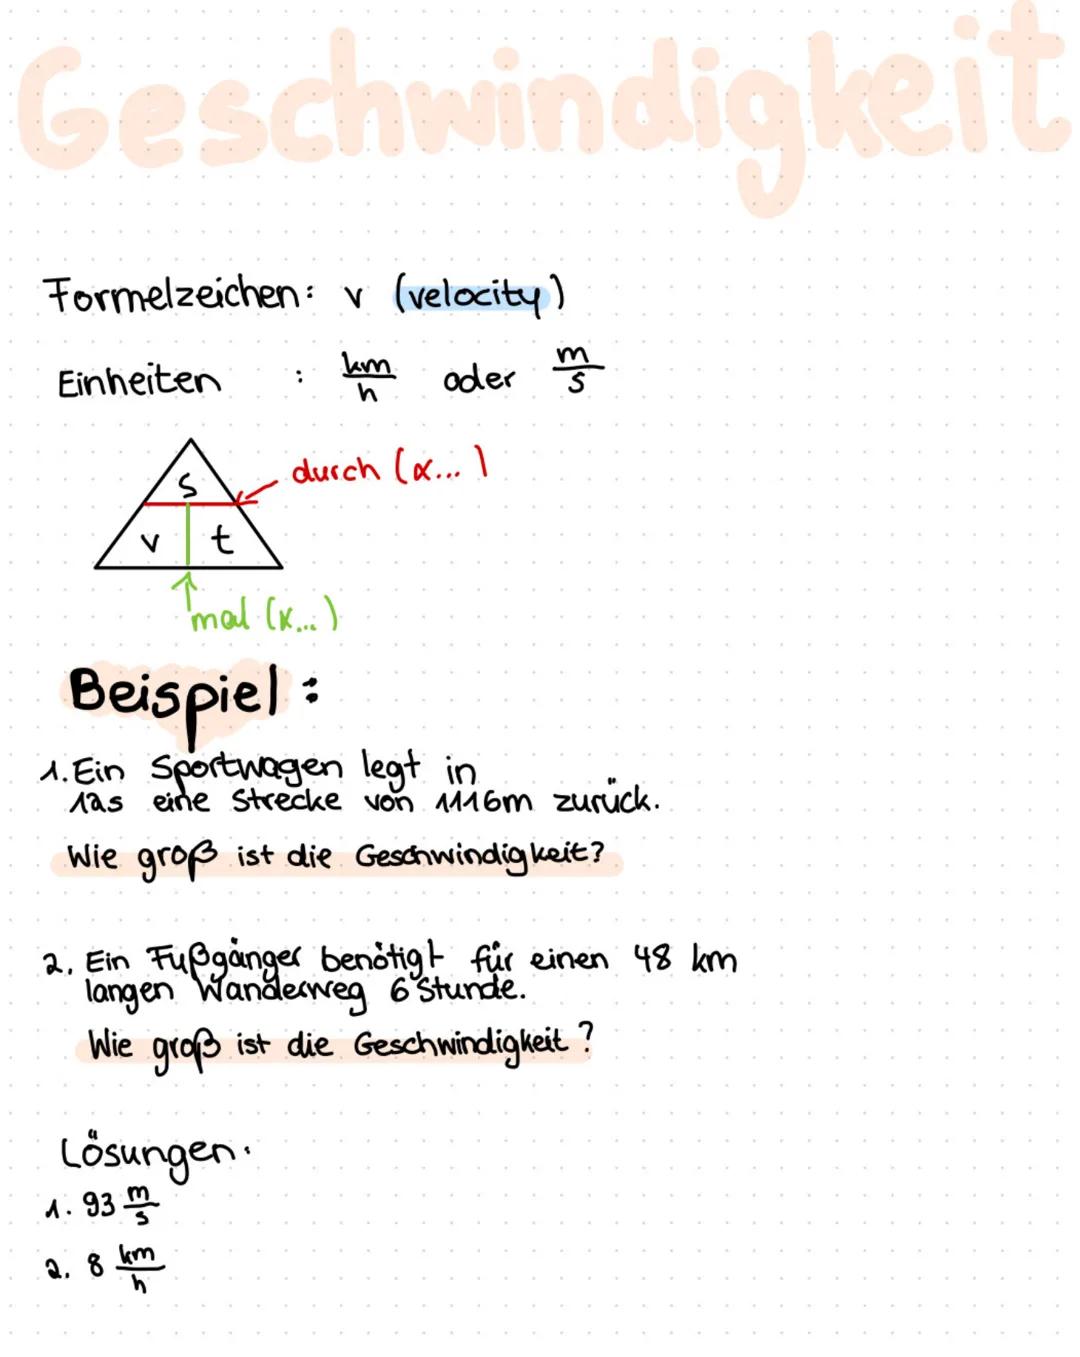 Geschwindigkeit
Formelzeichen: v (velocity)
Einheiten : km/h oder m/s
s
durch (x...)
v t
mal (x...)
Beispiel:
1. Ein Sportwagen legt in
12s eine Strecke von 1116m zurück.
Wie groß ist die Geschwindigkeit?
2. Ein Fußgänger benötigt für einen 48 km
langen Wanderweg 6 Stunde.
Wie groß ist die Geschwindigkeit?
Lösungen:
1. 93 m/s
2. 8 km/h